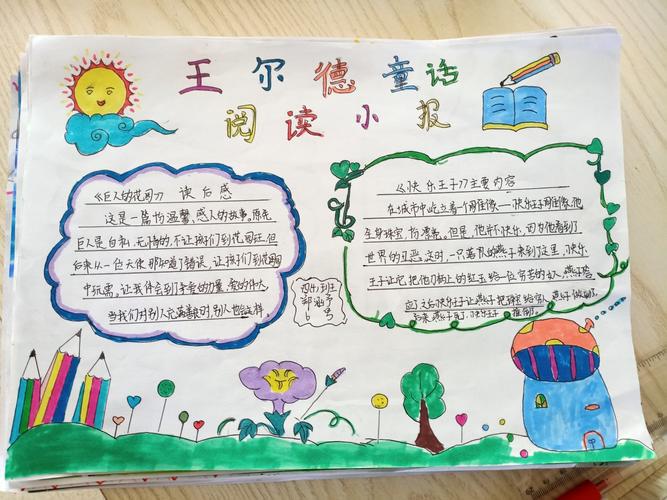 王尔德童话
阅读小报
《巨人的花园》 读后感
这是一篇均温馨,感人的故事。原先
巨人是自私、无情的,不让孩子们到花园玩.但
后来从一位天使那知道了错误,让孩子们到花园
中玩耍。让我体会到了爱的力量,爱的伟大
当我们对别人充满爱时,别人也会这样.
《快乐王子》主要内容
在城市中屹立着个雕像——快乐王子雕像他
全身珠宝,均漂亮。但是,他不快乐,因为他看到了
世界的丑恶。这时,一只善良的燕子来到了这里,快乐
王子让它,把他刀柄上的红玉给一位穷苦的妇人,燕子答
应了之后快乐王子让燕子把
燕子做到了.
后来燕子死了,快乐王子
四(4)班